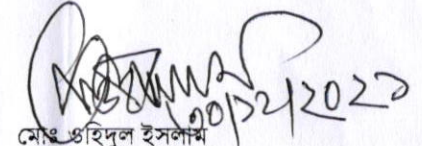 ৩০/১২/২০২১
মোঃ ওহিদুল ইসলাম